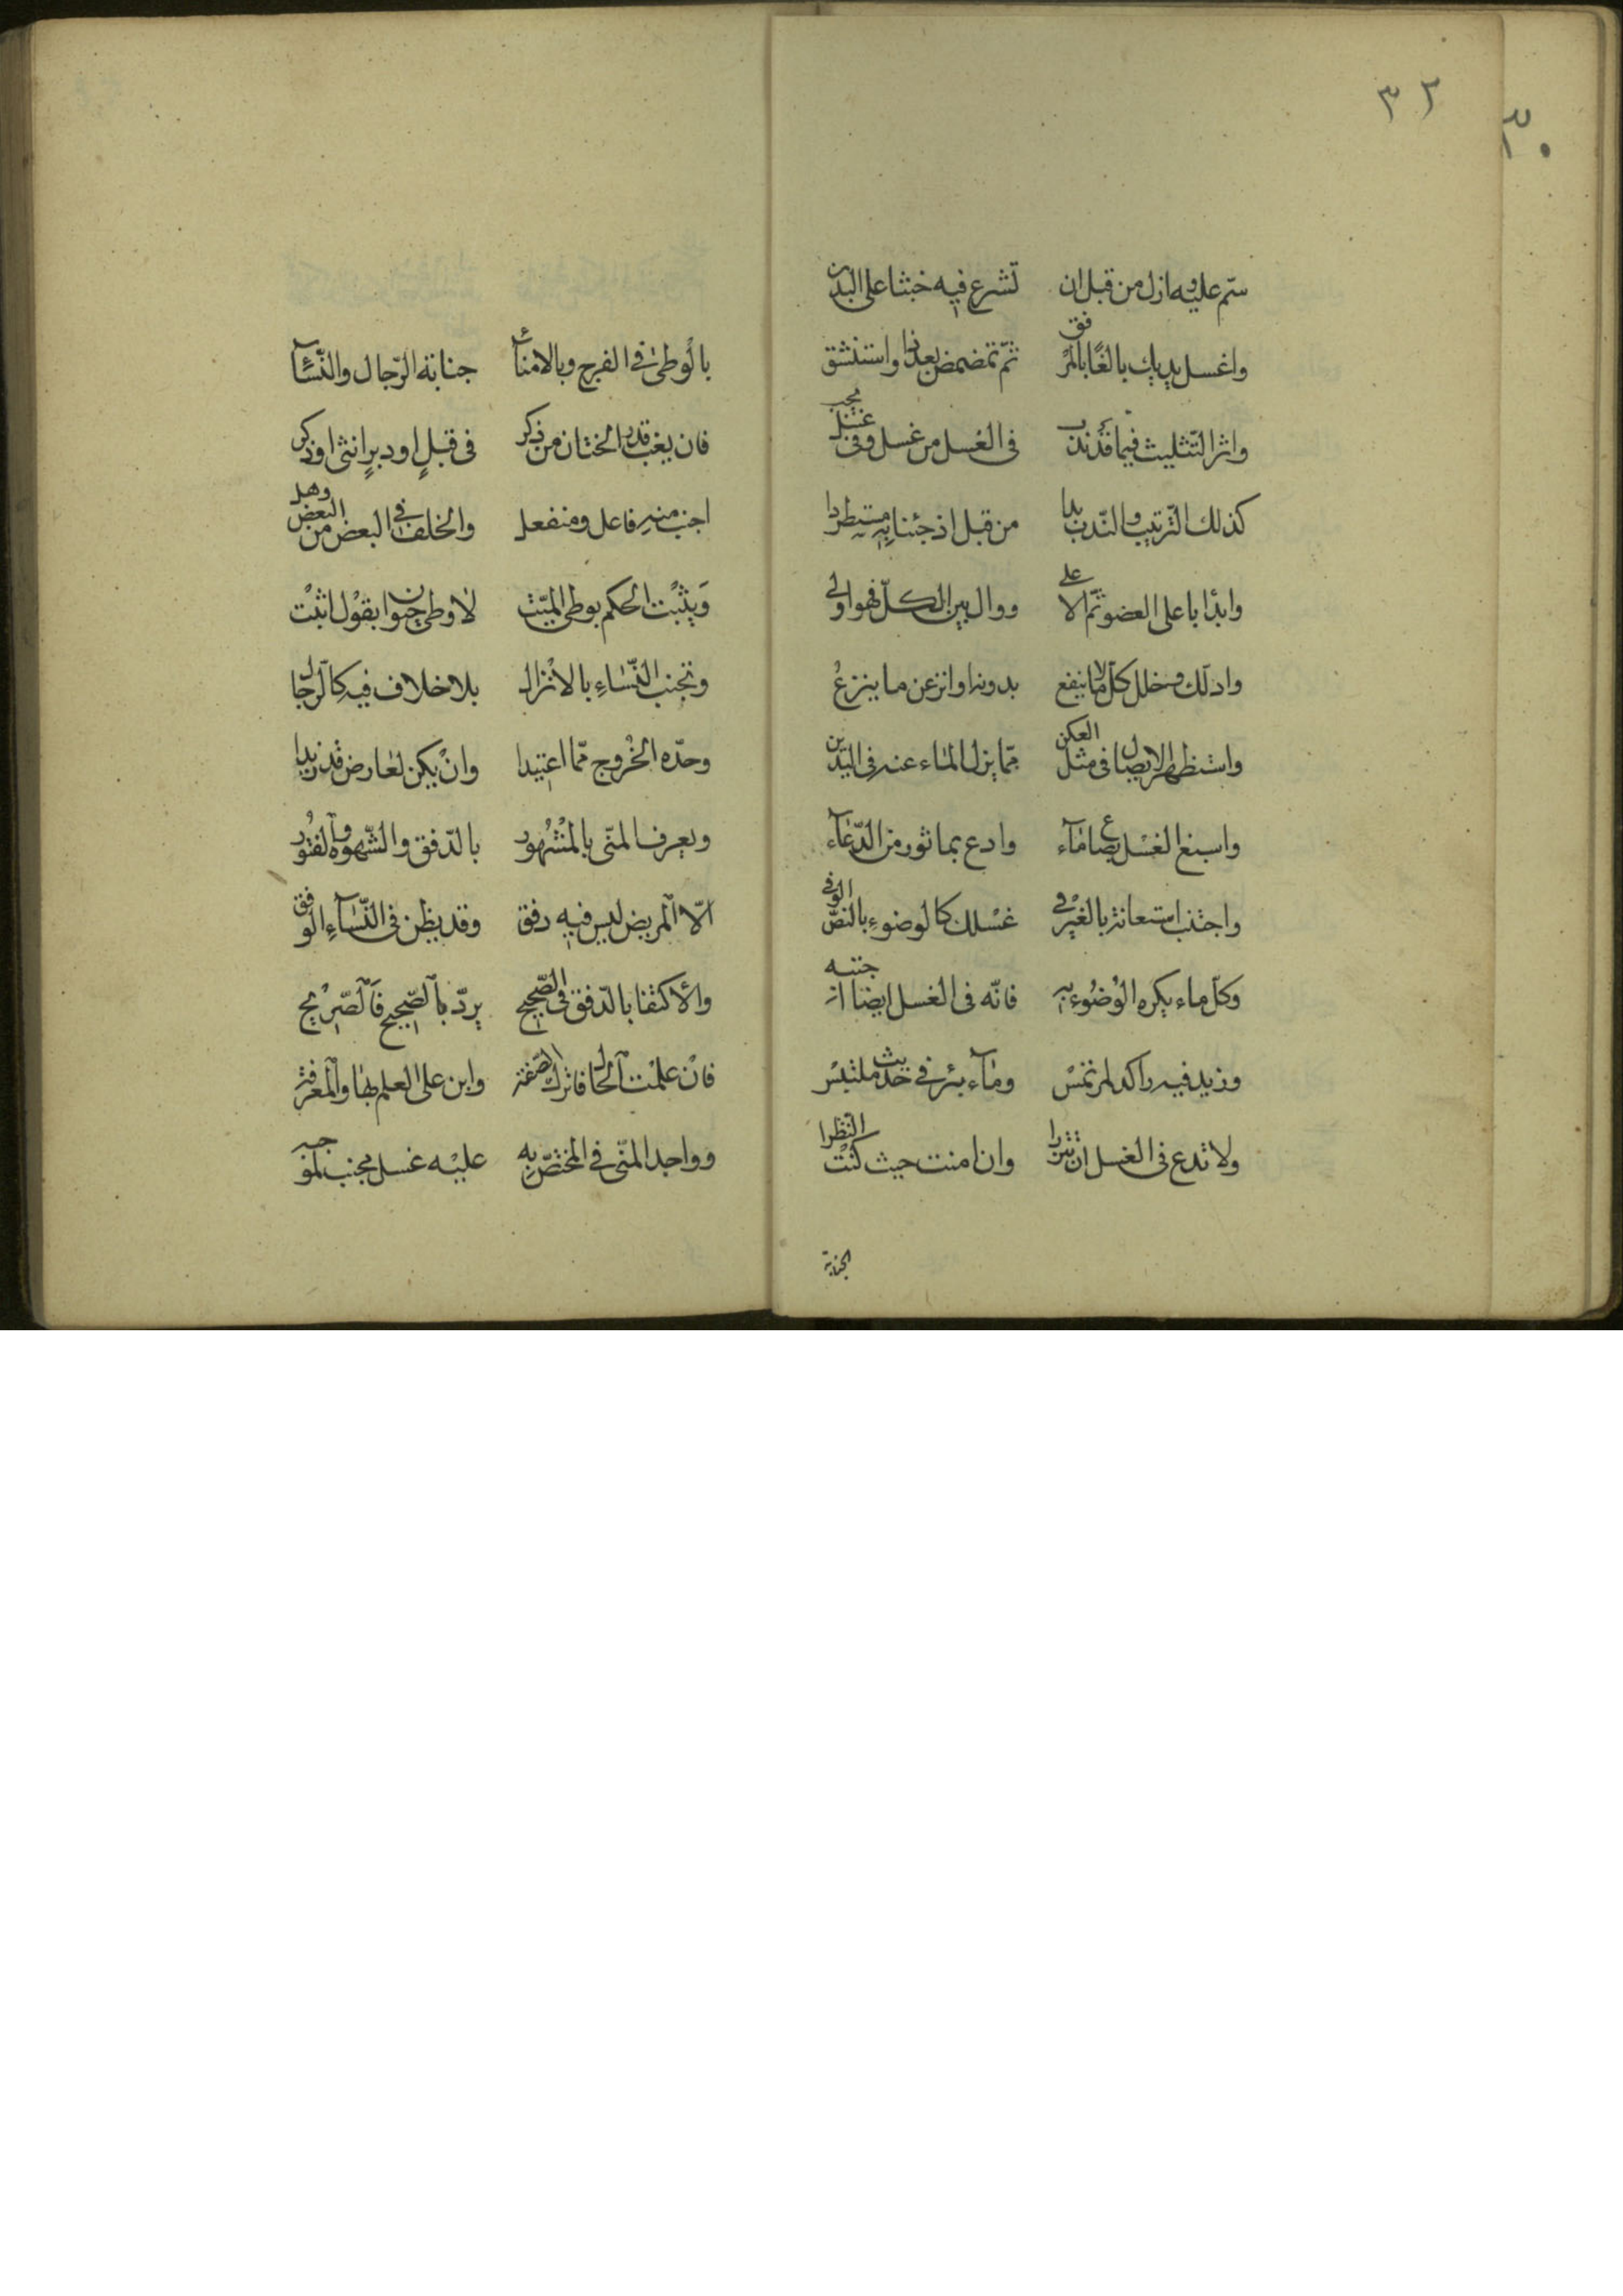 ٣٢
٣٠
سمّ عليه وازل من قبل ان تشرع فيه خبثا على البدن
واغسل يديك بالغًا بالمرفق ثمّ تمضمض بعدذا واستنشق
واثر التّثليث فيما قد ندب فى الغسل من غسل وفى غسل يجب
كذلك التّرتيب والنّدب بدا من قبل اذ جئنا به مستطردا
وابدٔا باعلى العضو ثمّ الاعلى ووال بين الكلّ فهو اولى
وادلك وخلل كلّ ما لا ينفع بدونه وانزعن ما ينزعْ
واستظهر الايصال فى مثل العكن ممّا يزل المآء عنه فى البدن
واسبغ الغسل بصاع مآء وادع بماثور من الدّعآء
واجتنب استعانة بالغيْر فى غسْلك كالوضوءِ بالنصّ الوفى
وكلّ ماء يكره الوُضُوء به فانّه فى الغسل ايضا اجتنبه
وزيد فيه راكد لم تمسْ ومآء بئر فى حديث ملتبسْ
ولا تدع فى الغسل ان تتزرا وان امنت حيث كنْت النّظرا
الجنابة
جنابة الرّجال والنّسآء بالْوطئ فى الفرج وبالامنآء
فان يغب قدر الختان من ذكر فى قبلٍ او دبرٍ انثى او ذكر
اجنب منه فاعل ومنفعل والخلف فى البعض من البعض وهل
وَيثبْت الحكم بوطى الميّت لا وطى حيوان بقوْل اثبْت
وتجنب النّسَاءِ بالانْزال بلا خلاف فيه كالرّجال
وحدّه الخُروج ممّا اعتيدا وانْ يكن لعارض قد زيدا
ويعرف المنى بالمشْهُور بالدّفق والشّهوة والفتُور
الّا المريض ليس فيه دفق وقد يظن فى النّسآءِ الوفق
والاكتفا بالدّفق فى الصّحيح يردّ بالصّحيح فالصّريْح
فانْ علمْت الحال فاترك الصّفة وابن على العلم بها والمعْرفة
وواجد المنّى فى المختصّ به عليْه غسل مجنب لموجبه